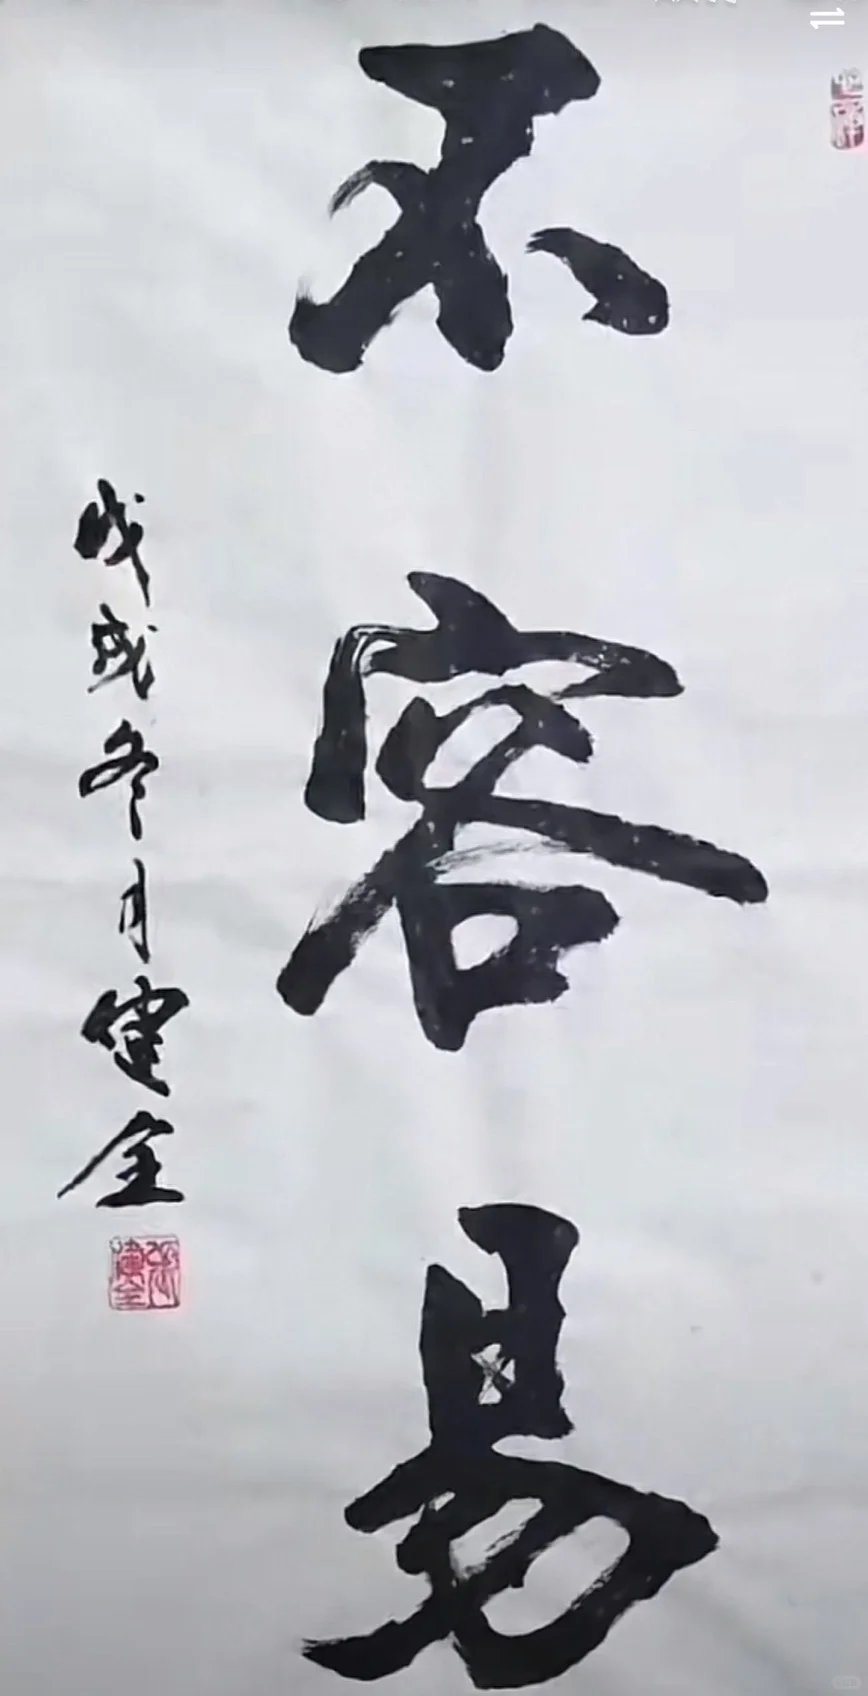 不容易
戊戌冬月健全